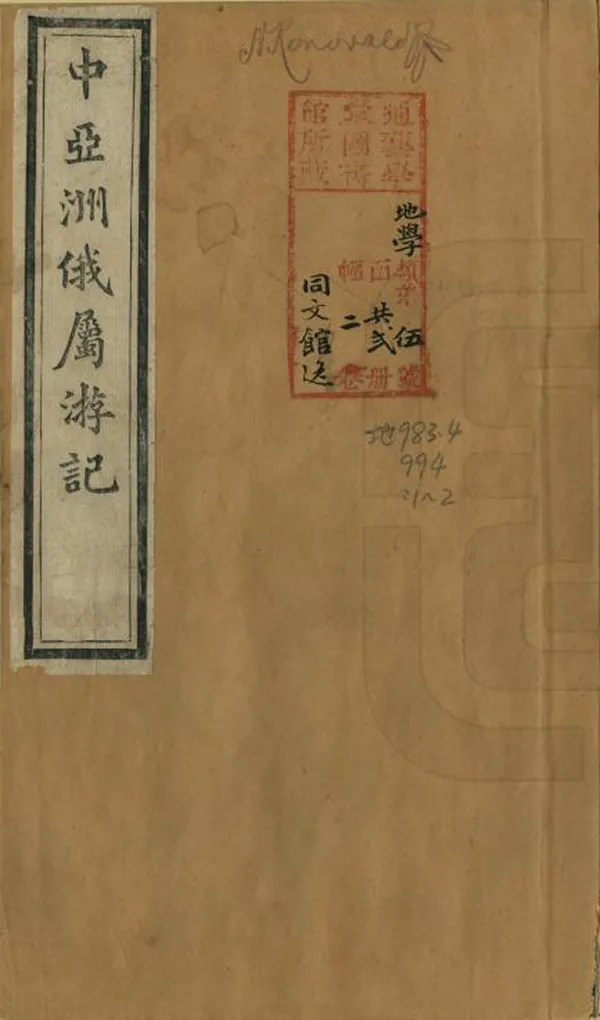 中亞洲俄屬游記
A. Konovaloff
通藝學
堂圖書
館所藏
地學類第伍號
共弍册
二卷
同文館送
地983.4
994
:1~2